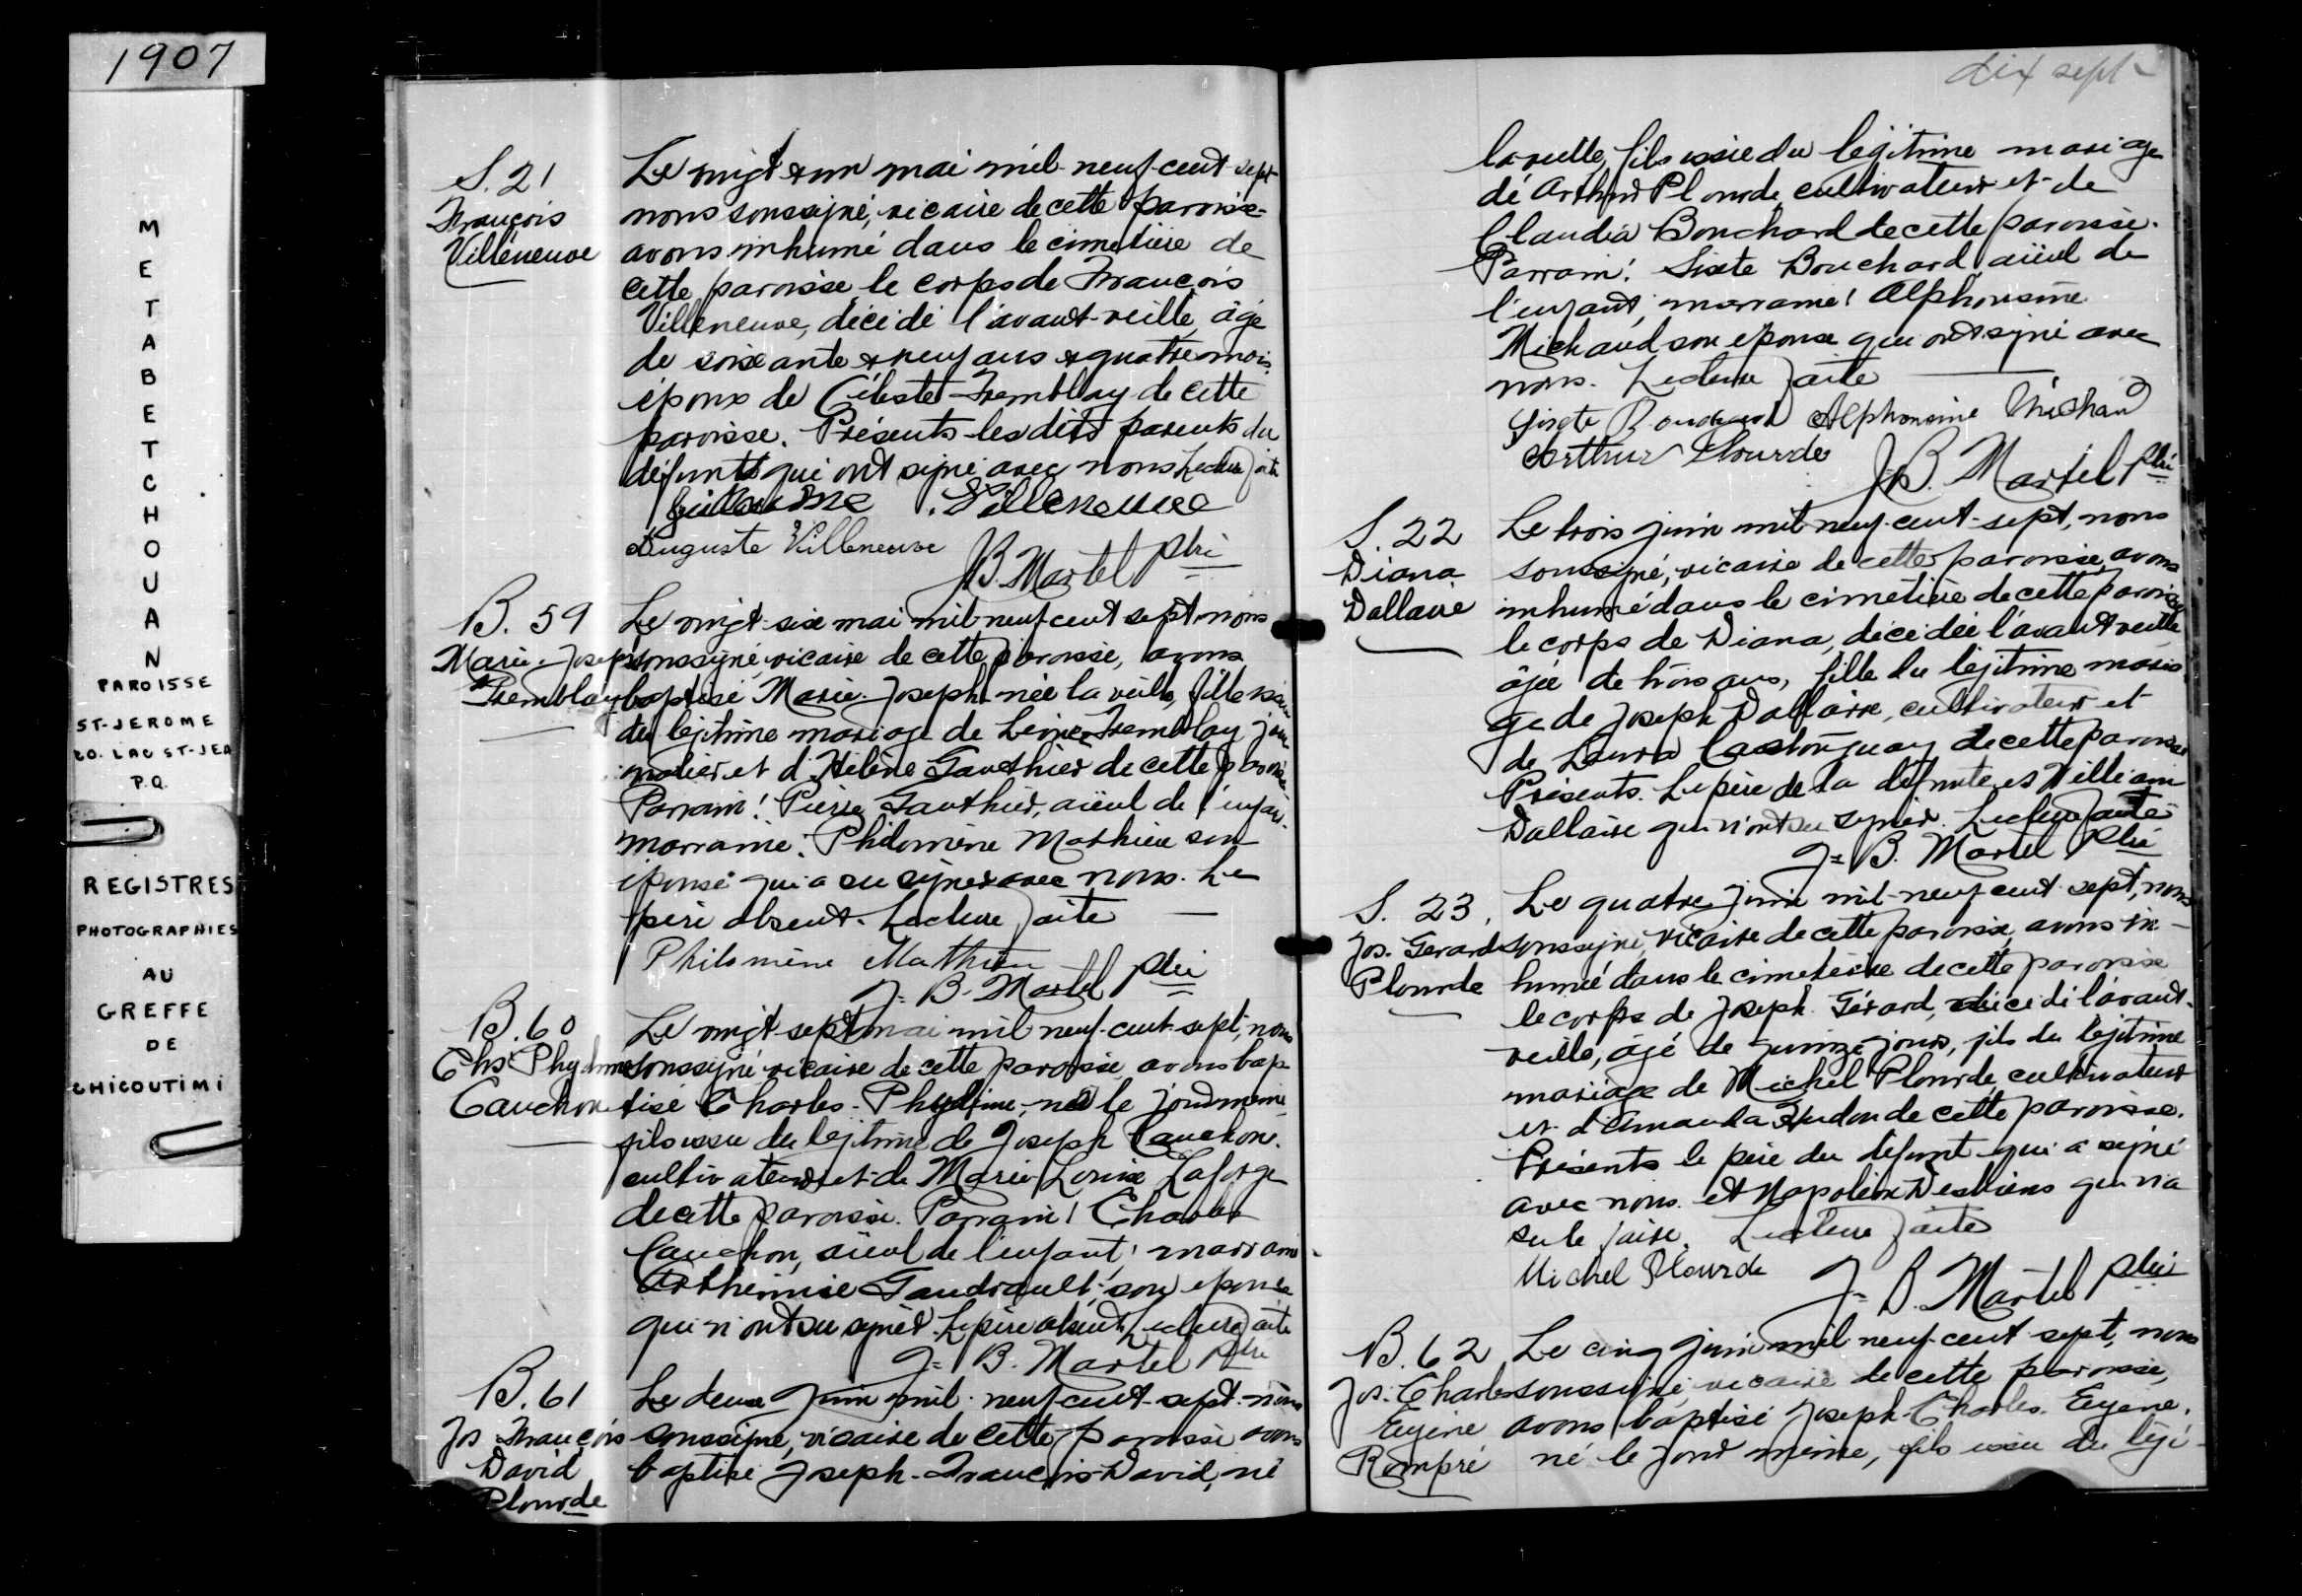 1907
METABETCHOUAN
PAROISSE
ST-JEROME
CO. LAC ST-JEA
P.Q.
REGISTRES
PHOTOGRAPHIES
AU
GREFFE
DE
CHICOUTIMI
S. 21
François
Villeneuve
Le vingt & un mai mil-neuf-cent-sept
nous soussigné, vicaire de cette paroisse
avons inhumé dans le cimetière de
cette paroisse le corps de François
Villeneuve, décédé l'avant-veille, âgé
de soixante & neuf ans & quatre mois
époux de Céleste Tremblay de cette
paroisse. Présents les dits parents du
défunt qui ont signé avec nous Lecture faite
Guillaume Villeneuve
Auguste Villeneuve
J.B. Martel Ptre
B. 59
Marie-Joseph
Tremblay
Le vingt-six mai mil-neuf-cent sept nous
soussigné vicaire de cette paroisse, avons
baptisé Marie-Joseph née la veille, fille issue
du légitime mariage de Tremblay jour
nalier et d'Hélène Gauthier de cette paroisse
Parrain: Pierre Gauthier, aïeul de l'enfan
marraine: Philomène Mathieu son
épouse qui a su signer avec nous. Le
père absent. Lecture faite
Philomène Mathieu
J.-B. Martel Ptre
B. 60
Chs Phydime
Cauchon
Le vingt-sept mai mil neuf-cent-sept, nous
soussigné vicaire de cette paroisse avons bap
tisé Charles-Phydime, né le jour même
fils issu du légitime de Joseph Cauchon
cultivateur et de Marie Louise Laforge
de cette paroisse. Parrain: Charles
Cauchon, aïeul de l'enfant; marraine
Arthémise Gaudreault, son épouse
qui n'ont su signer. Le père absent. Lecture faite
J.-B. Martel Ptre
B. 61
Jos François
David
Plourde
Le deux Juin mil-neuf-cent-sept nous
soussigné, vicaire de cette paroisse avons
baptisé Joseph-François-David, né
dix sept
la veille, fils issu du légitime mariage
de Arthur Plourde, cultivateur et de
Claudia Bouchard de cette paroisse.
Parrain: Sixte Bouchard, aïeul de
l'enfant, marraine: Alphonsine
Michaud son épouse qui ont signé avec
nous. Lecture faite
Sixte Bouchard Alphonsine Michaud
Arthur Plourde
J.B. Martel Ptre
S. 22
Diana
Dallaire
Le trois juin mil neuf-cent-sept, nous
soussigné, vicaire de cette paroisse, avons
inhumé dans le cimetière de cette paroisse
le corps de Diana, décédée l'avant veille
âgée de trois ans, fille du légitime maria
ge de Joseph Dallaire, cultivateur et
de Laura Castonguay de cette paroisse
Présents. Le père de la défunte et William
Dallaire qui n'ont su signer. Lecture faite
J.-B. Martel Ptre
S. 23.
Jos. Gerard
Plourde
Le quatre juin mil-neuf cent-sept, nous
soussigné, vicaire de cette paroisse, avons in-
humé dans le cimetière de cette paroisse
le corps de Joseph Gérard, décédé l'avant-
veille, âgé de quinze jours, fils du légitime
mariage de Michel Plourde cultivateur
et d'Amanda Hudon de cette paroisse.
Présents le père du défunt qui a signé
avec nous et Napoléon Desbiens qui n'a
su le faire. Lecture faite
Michel Plourde
J.-B. Martel Ptre
B. 62
Jos. Charles
Eugène
Rompré
Le cinq juin mil neuf-cent sept, nous
soussigné, vicaire de cette paroisse,
avons baptisé Joseph-Charles Eugene,
né le jour même, fils issu du légi-